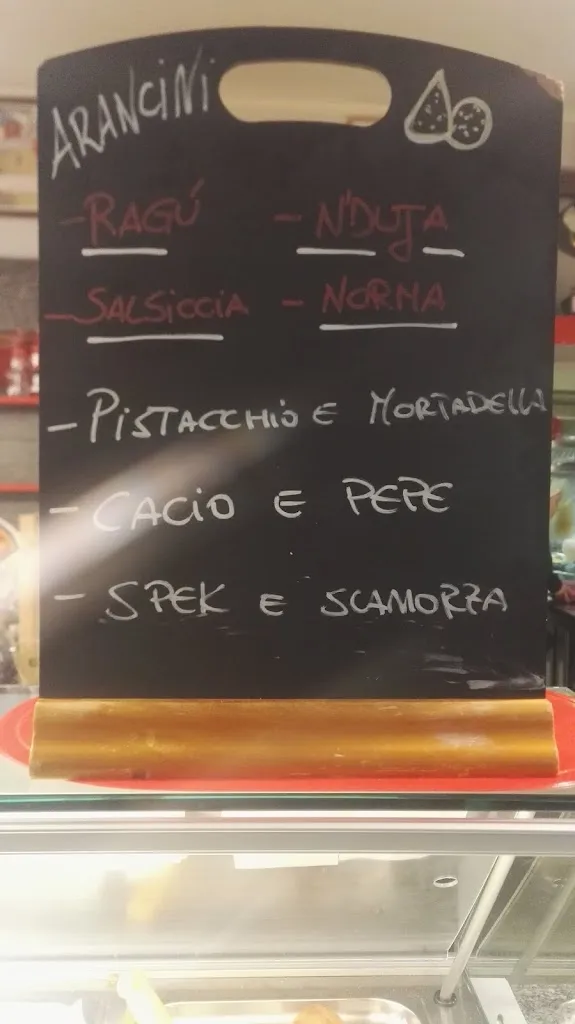 ARANCINI
- RAGÚ - N'DUJA
- SALSICCIA - NORMA
- PISTACCHIO E MORTADELLA
- CACIO E PEPE
- SPEK E SCAMORZA